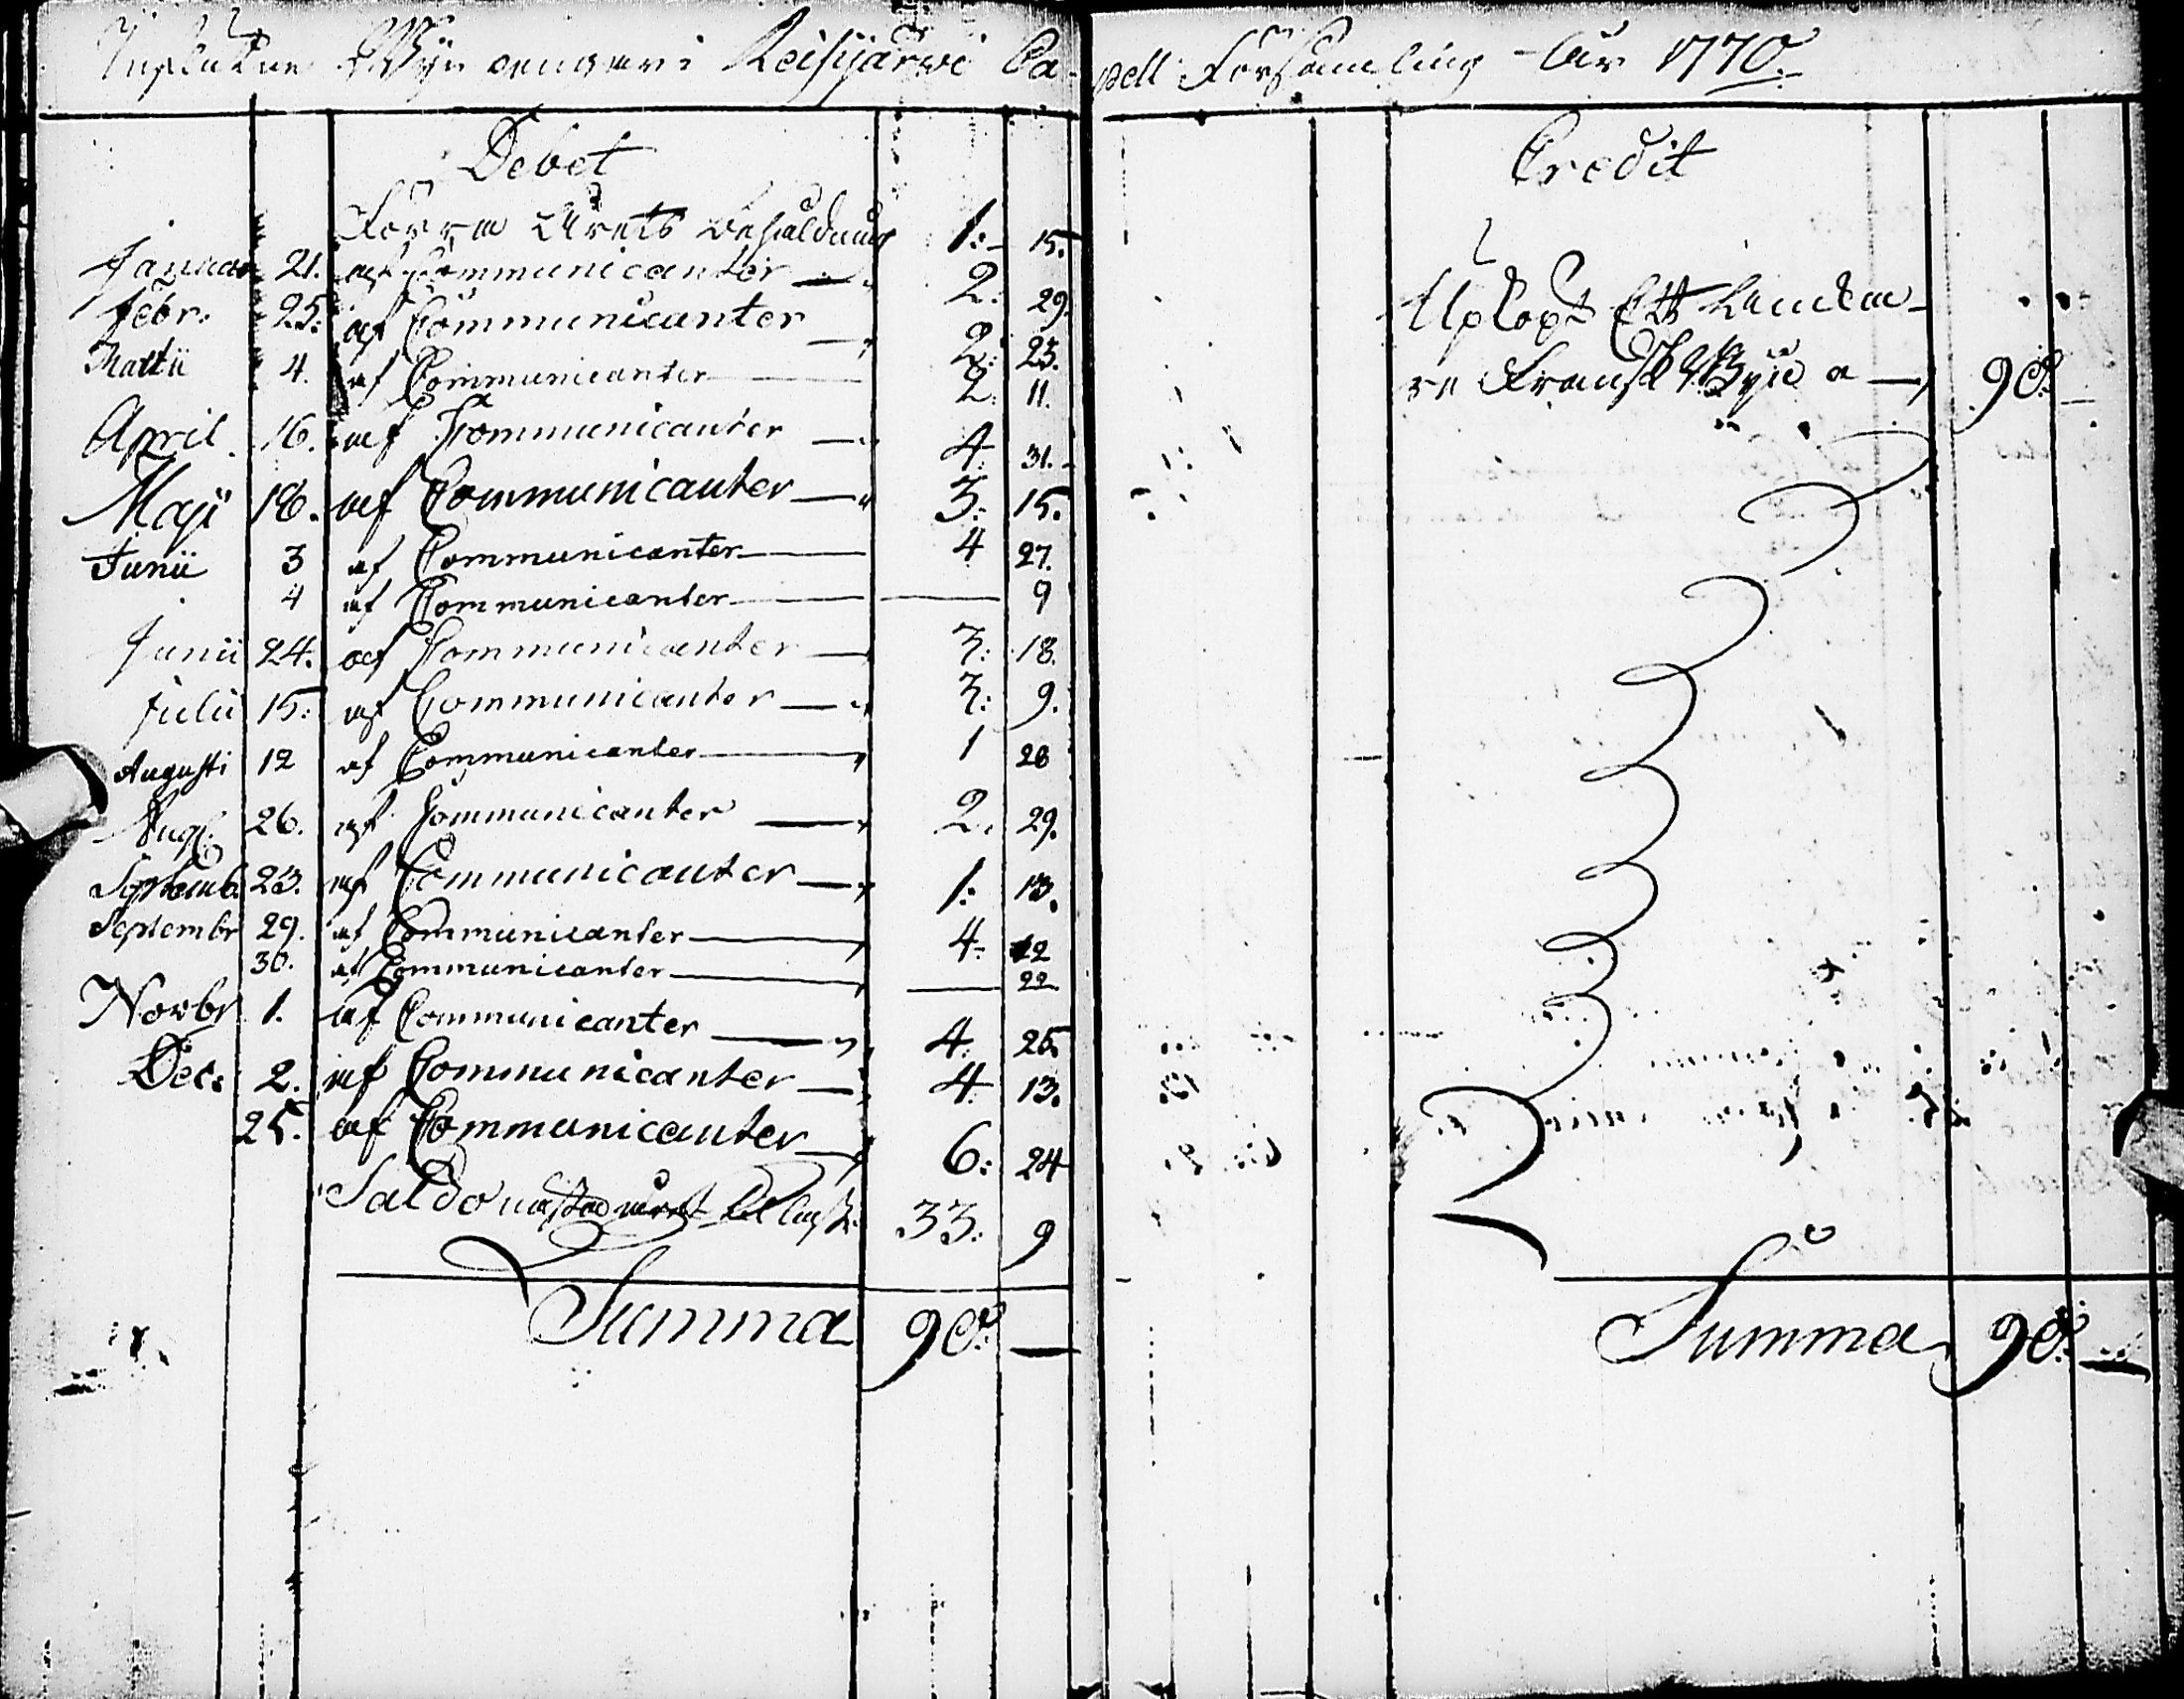 Influtne Wijn penger i Reisijärwi Ca-
pell Församling Åhr 1770.
Debet
Förra Årets behåldning 1: 15.
Januar 21. af Communicanter 2. 29.
Febr. 25. af Communicanter 2: 23.
Martii 4. af Communicanter 2. 11.
April. 16. af Communicanter 4. 31.
Maji 18. af Communicanter 3: 15.
Junii 3 af Communicanter 4 27.
4 af Communicanter 9
Junii 24. af Communicanter 3: 18.
Julii 15: af Communicanter 3: 9.
Augusti 12 af Communicanter 1 28
Aug. 26. af Communicanter 2. 29.
Septemb. 23. af Communicanter 1: 13.
Septembr 29. af Communicanter 4: 12
30. af Communicanter 22
Novbr 1. af Communicanter 4. 25.
Dec: 2. af Communicanter 4 13.
25. af Communicanter 6: 24
Saldo 33: 9
Summa 90: —
Credit
Upköpt Ett
re Franskt Wijn a 90: —
Summa 90: —